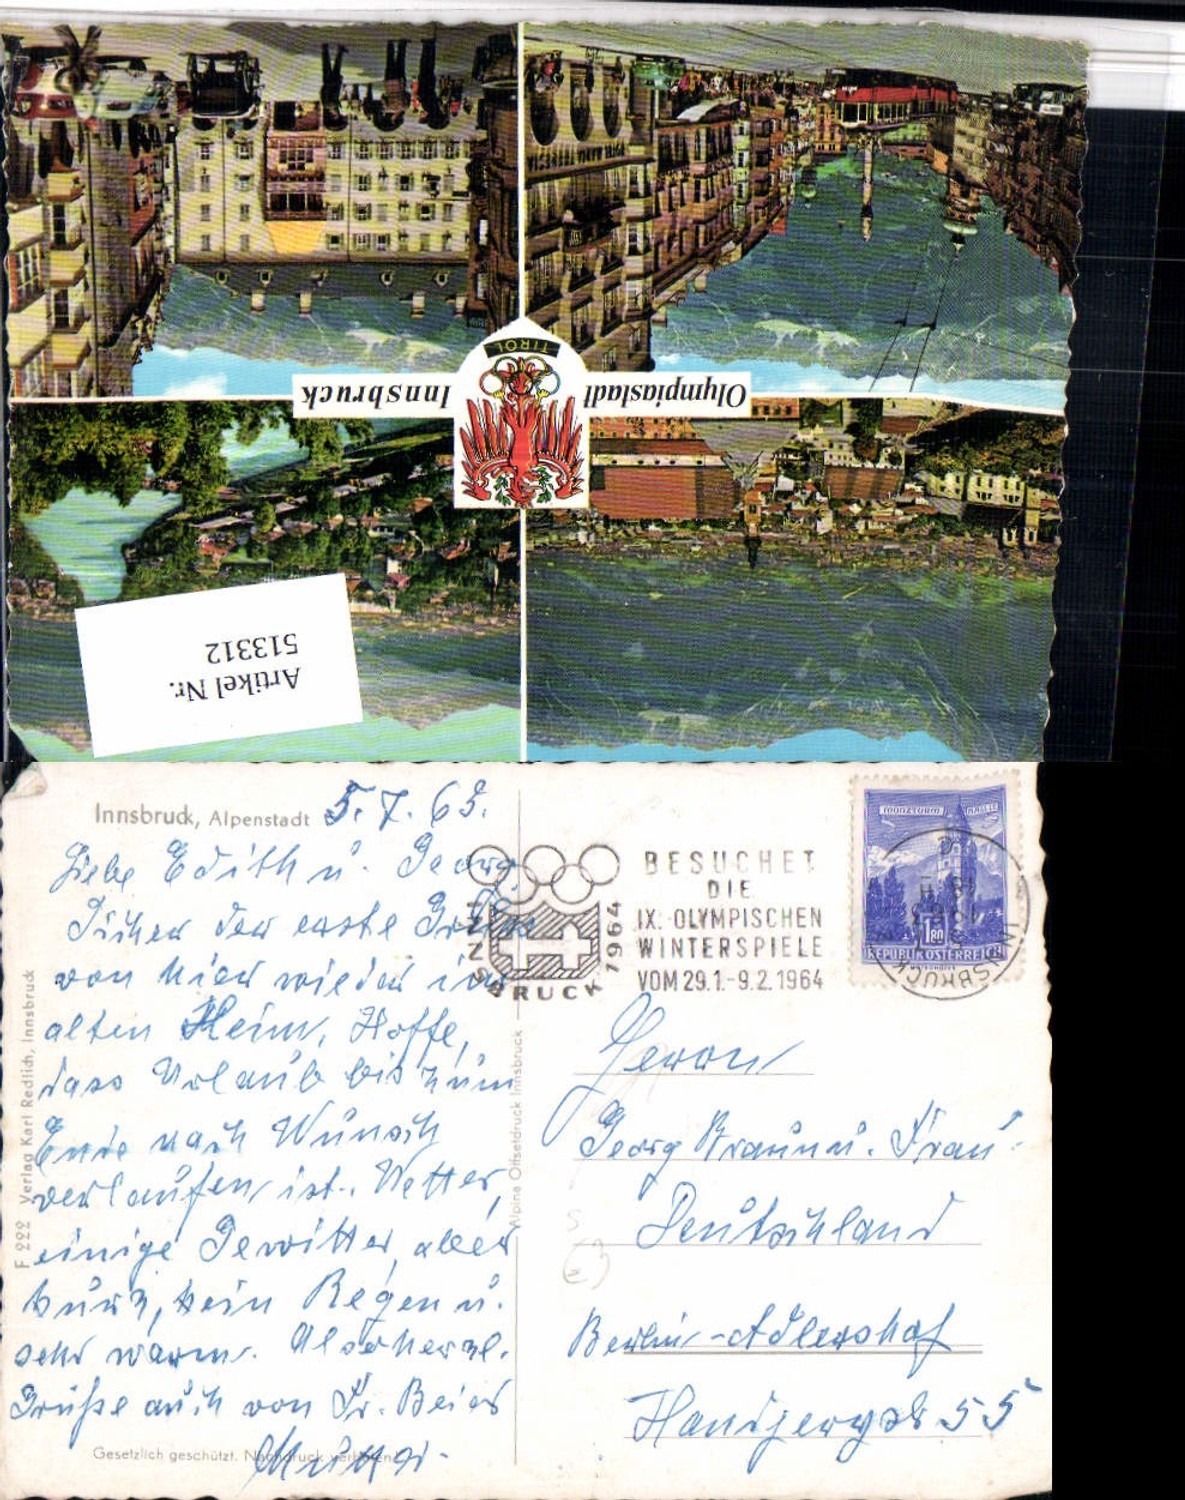 Olympiastadt Innsbruck
TIROL
Artikel Nr.
513312
Innsbruck, Alpenstadt
5.7.63.
Liebe Edith u. Georg
von hier wieder im
alten Heim, Hoffe,
dass Urlaub bis zum
Ende nach Wunsch
verlaufen ist. Wetter,
einige Gewitter, aber
kurz, kein Regen u.
sehr warm. Also herzl.
Grüße auch von Fr. Beier
Gesetzlich geschützt. Nachdruck verboten
F 222 Verlag Karl Redlich, Innsbruck
Alpina Offsetdruck Innsbruck
INNSBRUCK 1964
BESUCHET
DIE
IX. OLYMPISCHEN
WINTERSPIELE
VOM 29.1.-9.2.1964
MÜNZTURM HALL
1.80
REPUBLIK ÖSTERREICH
INNSBRUCK
Herrn
Georg Braun u. Frau
Deutschland
Berlin-Adlershof
55